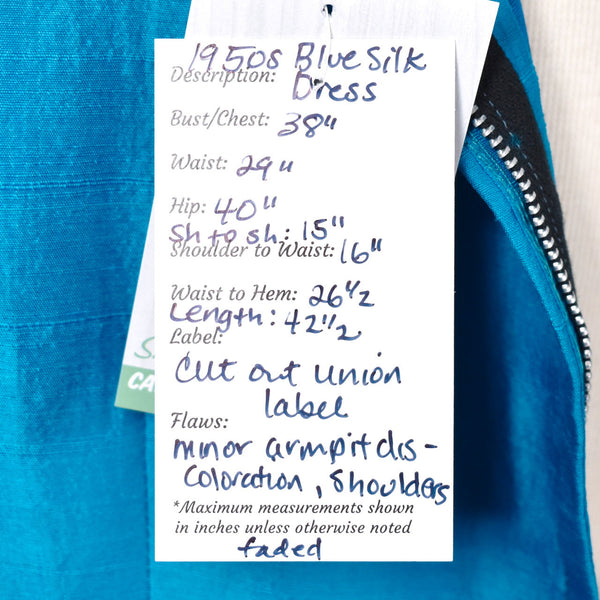 1950s Blue Silk
Description: Dress
Bust/Chest: 38"
Waist: 29"
Hip: 40"
Sh to sh: 15"
Shoulder to Waist: 16"
Waist to Hem: 26 1/2
Length: 42 1/2
Label:
Cut out union
label
Flaws:
minor armpit dis-
coloration, shoulders
*Maximum measurements shown
in inches unless otherwise noted
faded
CA